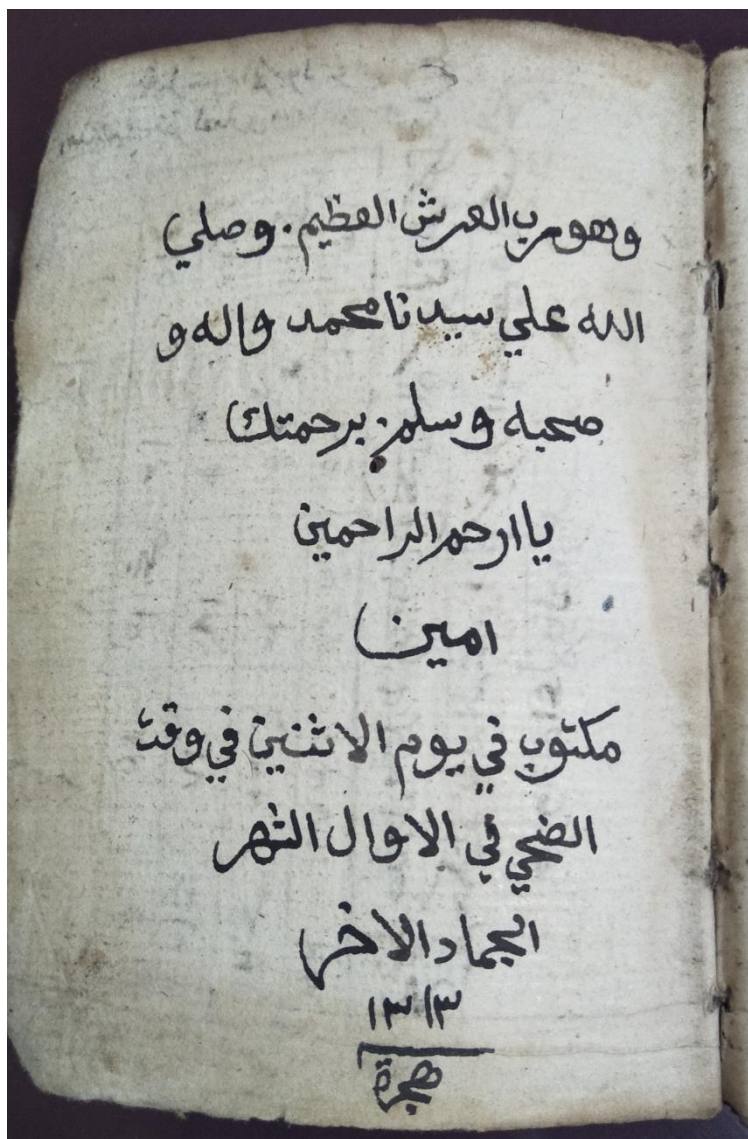 وهو رب العرش العظيم. وصلي
الله علي سيدنا محمد واله و
صحبه وسلم. برحمتك
يا ارحم الراحمين
امين
مكتوب في يوم الاثنين في وقت
الضحي في الاوال الشهر
الجماد الاخر
١٣١٣
هجرة